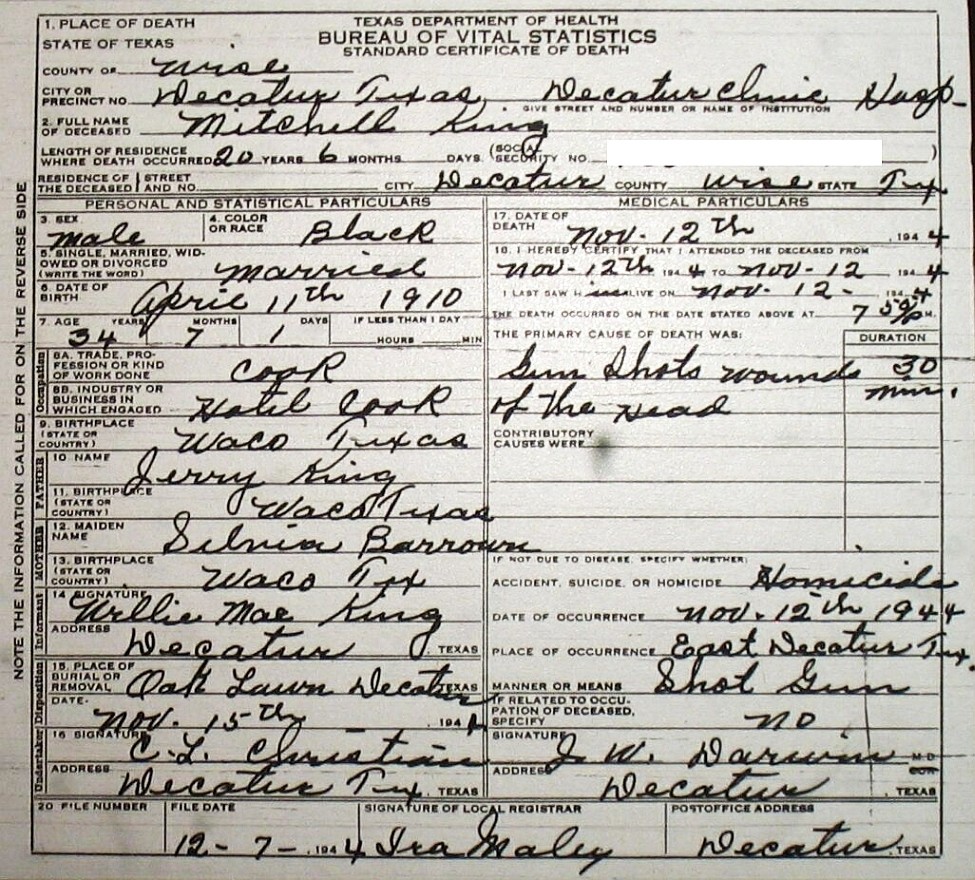 1. PLACE OF DEATH
TEXAS DEPARTMENT OF HEALTH
STATE OF TEXAS
BUREAU OF VITAL STATISTICS
STANDARD CERTIFICATE OF DEATH
COUNTY OF Wise
CITY OR PRECINCT NO. Decatur Texas, Decatur Clinic Hosp-
GIVE STREET AND NUMBER OR NAME OF INSTITUTION
2. FULL NAME OF DECEASED Mitchell King
LENGTH OF RESIDENCE WHERE DEATH OCCURRED 20 YEARS 6 MONTHS DAYS (SOCIAL SECURITY NO. )
RESIDENCE OF THE DECEASED STREET AND NO. CITY Decatur COUNTY Wise STATE Tex
PERSONAL AND STATISTICAL PARTICULARS
3. SEX male
4. COLOR OR RACE Black
5. SINGLE, MARRIED, WIDOWED OR DIVORCED (WRITE THE WORD) married
6. DATE OF BIRTH April 11th 1910
7. AGE YEARS 34 MONTHS 7 DAYS 1 IF LESS THAN 1 DAY HOURS MIN
Occupation
8A. TRADE, PROFESSION OR KIND OF WORK DONE Cook
8B. INDUSTRY OR BUSINESS IN WHICH ENGAGED Hotel Cook
9. BIRTHPLACE (STATE OR COUNTRY) Waco Texas
FATHER
10 NAME Jerry King
11. BIRTHPLACE (STATE OR COUNTRY) Waco Texas
MOTHER
12. MAIDEN NAME Silvia
13. BIRTHPLACE (STATE OR COUNTRY) Waco Tex
Informant
14 SIGNATURE Willie Mae King
ADDRESS Decatur, TEXAS
Disposition
15. PLACE OF BURIAL OR REMOVAL Oak Lawn Decatur TEXAS
DATE- Nov. 15th, 1944
Undertaker
16 SIGNATURE C. L. Christian
ADDRESS Decatur Tex, TEXAS
MEDICAL PARTICULARS
17. DATE OF DEATH Nov. 12th, 1944
18. I HEREBY CERTIFY THAT I ATTENDED THE DECEASED FROM
Nov- 12th 1944 TO Nov- 12 1944
I LAST SAW H im ALIVE ON Nov. 12- 1944
THE DEATH OCCURRED ON THE DATE STATED ABOVE AT 7 50 P M.
THE PRIMARY CAUSE OF DEATH WAS: DURATION
Gun Shots wounds 30
of the Head min.
CONTRIBUTORY CAUSES WERE
IF NOT DUE TO DISEASE, SPECIFY WHETHER:
ACCIDENT, SUICIDE, OR HOMICIDE Homicide
DATE OF OCCURRENCE Nov. 12th 1944
PLACE OF OCCURRENCE East Decatur Tex
MANNER OR MEANS Shot Gun
IF RELATED TO OCCUPATION OF DECEASED, SPECIFY NO
SIGNATURE J W. Darwin M D
ADDRESS Decatur, TEXAS
20 FILE NUMBER
FILE DATE 12-7-, 1944
SIGNATURE OF LOCAL REGISTRAR Ira Maley
POSTOFFICE ADDRESS Decatur, TEXAS
NOTE THE INFORMATION CALLED FOR ON THE REVERSE SIDE